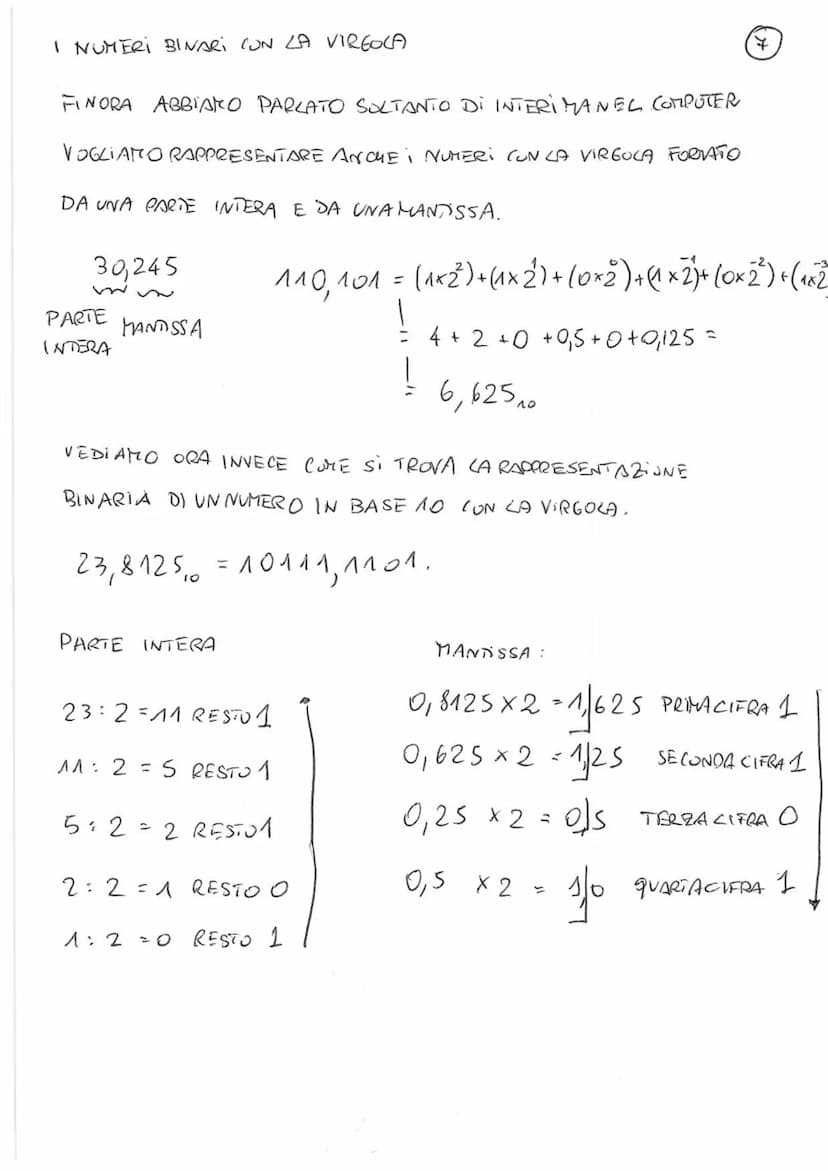 I NUMERI BINARI CON LA VIRGOLA
7
FINORA ABBIAMO PARLATO SOLTANTO DI INTERI MA NEL COMPUTER
VOGLIAMO RAPPRESENTARE ANCHE I NUMERI CON LA VIRGOLA FORMATO
DA UNA PARTE INTERA E DA UNA MANTISSA.
30,245
PARTE INTERA MANTISSA
110,101 = (1x2²)+(1x2¹)+(0x2⁰)+(1x2⁻¹)+(0x2⁻²)+(1x2⁻³
= 4 + 2 + 0 + 0,5 + 0 + 0,125 =
= 6,625₁₀
VEDIAMO ORA INVECE COME SI TROVA LA RAPPRESENTAZIONE
BINARIA DI UN NUMERO IN BASE 10 CON LA VIRGOLA.
23,8125₁₀ = 10111,1101.
PARTE INTERA
23 : 2 = 11 RESTO 1
11 : 2 = 5 RESTO 1
5 : 2 = 2 RESTO 1
2 : 2 = 1 RESTO 0
1 : 2 = 0 RESTO 1
MANTISSA :
0,8125 x 2 = 1,625 PRIMA CIFRA 1
0,625 x 2 = 1,25 SECONDA CIFRA 1
0,25 x 2 = 0,5 TERZA CIFRA 0
0,5 x 2 = 1,0 QUARTA CIFRA 1